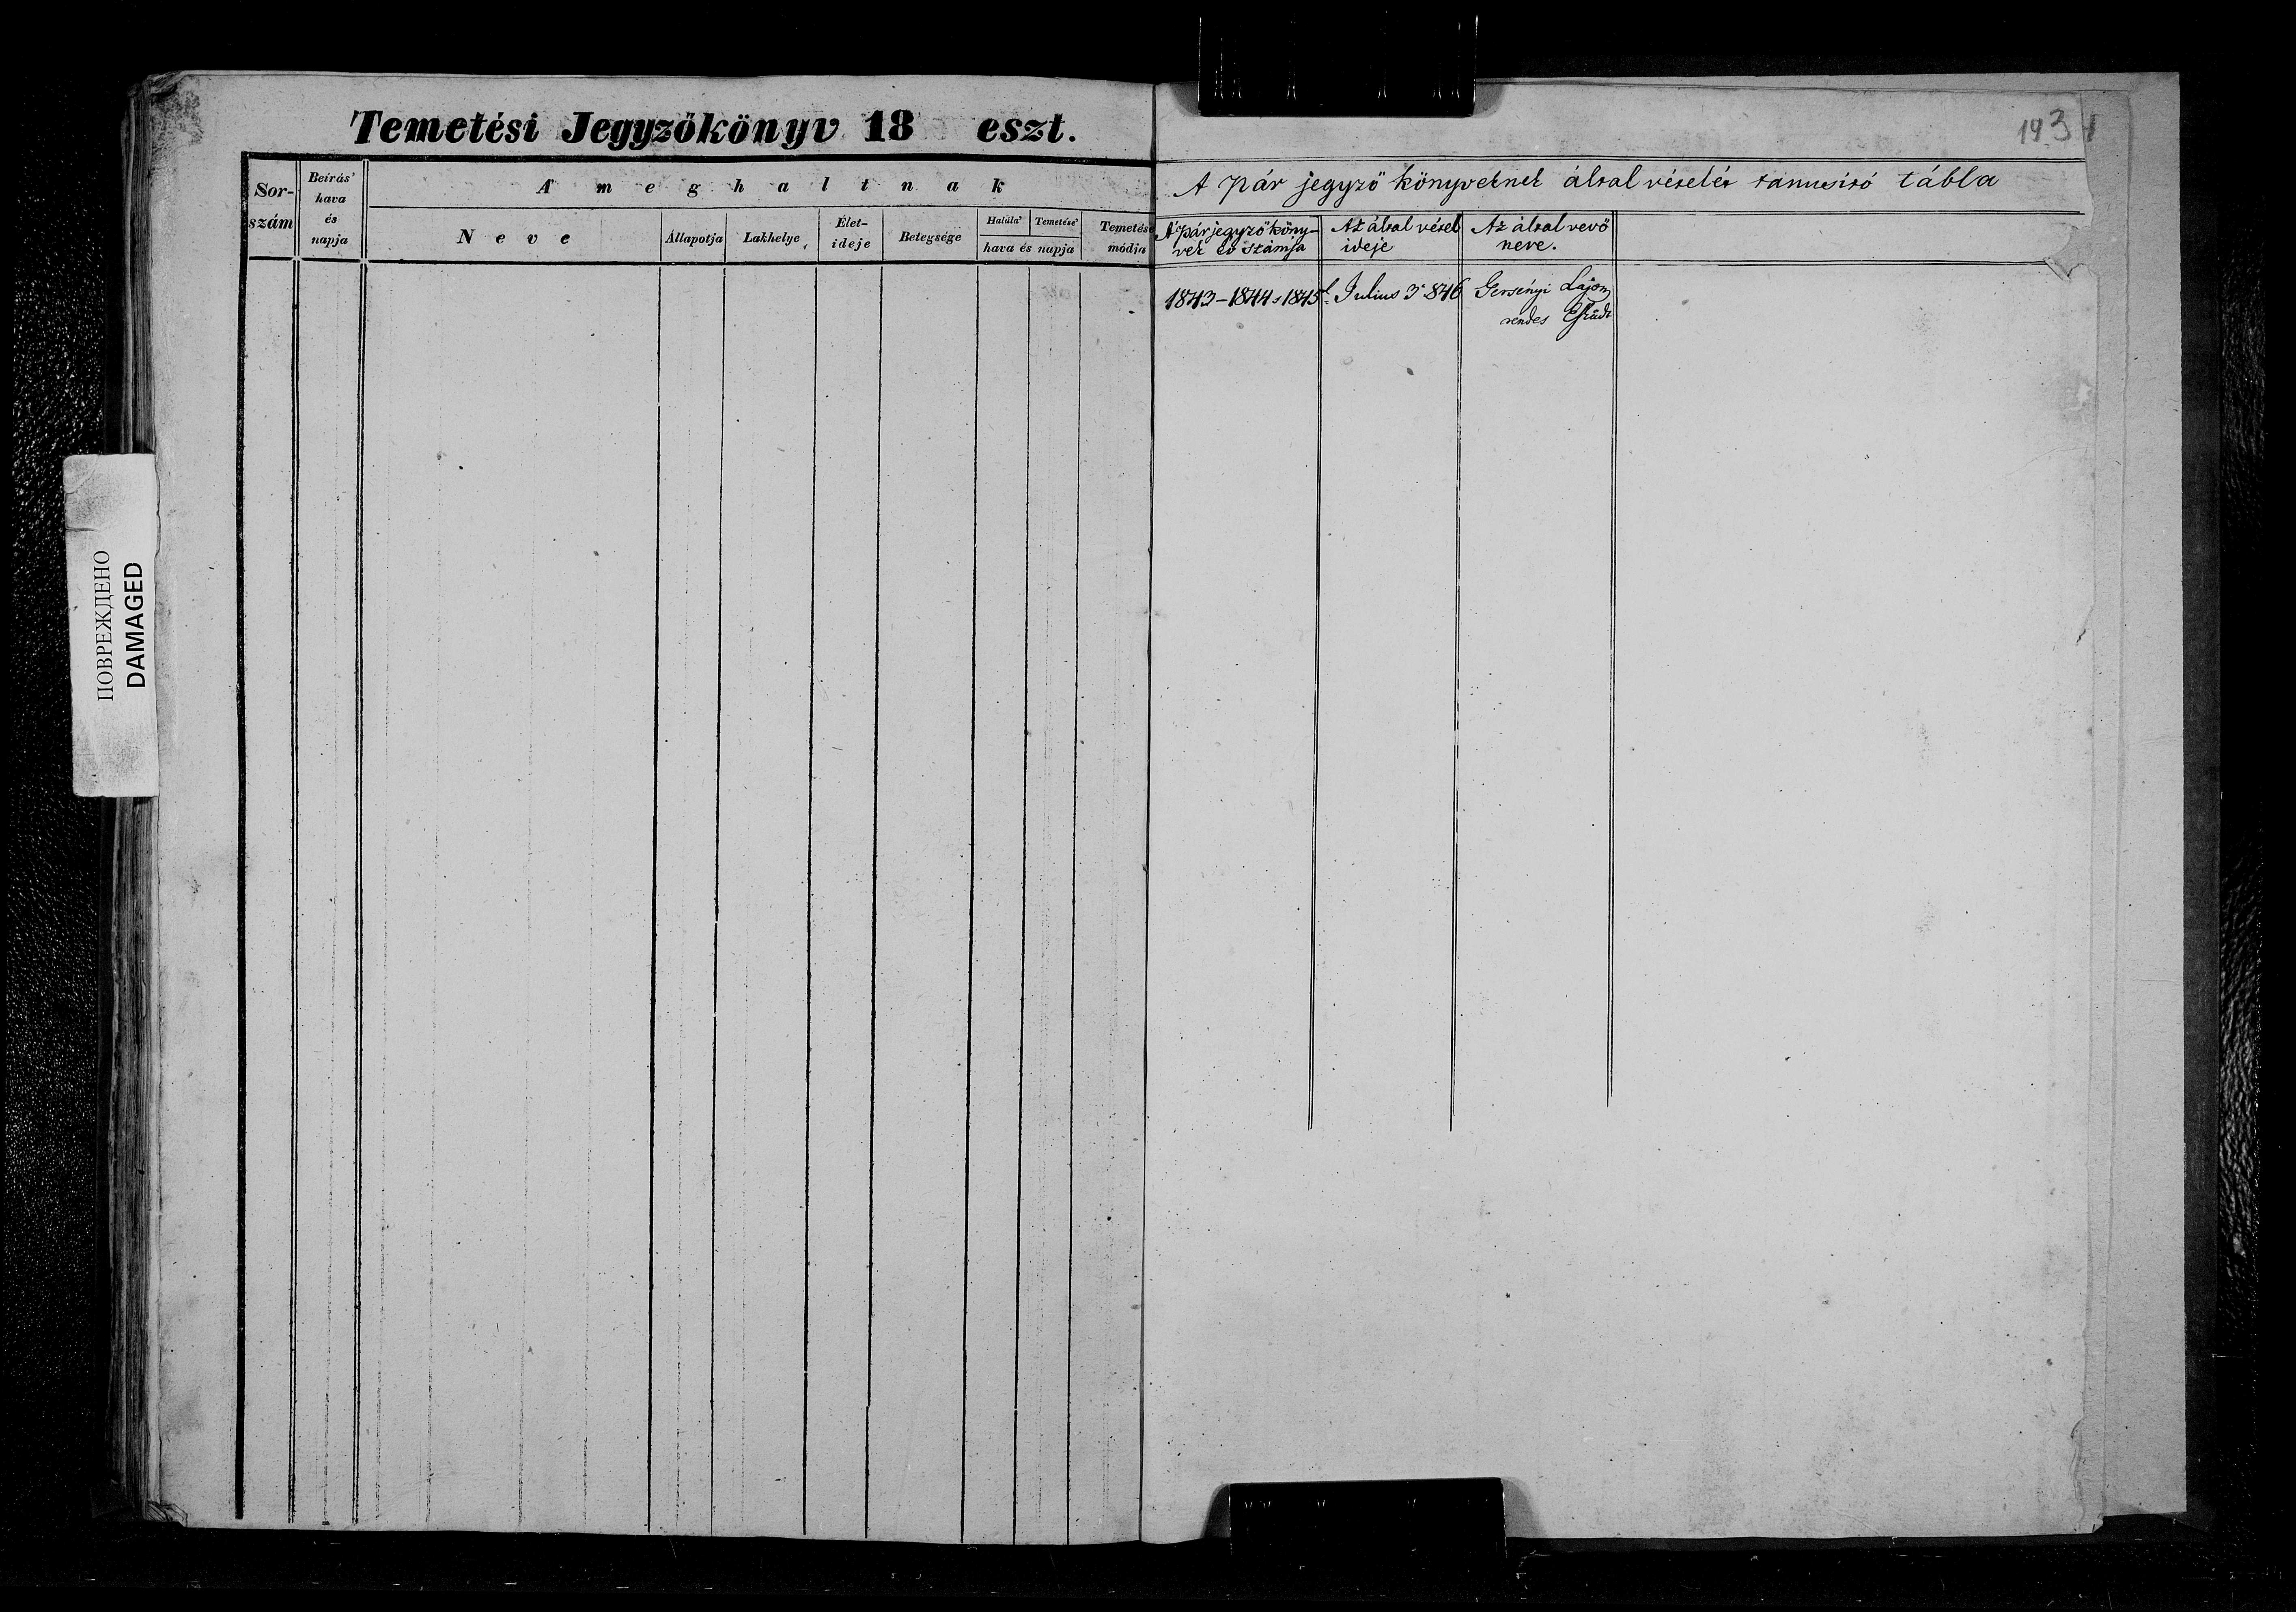 Temetési Jegyzőkönyv 18 eszt.
Sor-
szám
Beírás'
hava
és
napja
A meghaltnak
Neve
Állapotja
Lakhelye
Élet-
ideje
Betegsége
Halála'
Temetése'
hava és napja
Temetése
módja
193
A Pár jegyző könyveknek által vételét tanusító tábla
A' párjegyző köny-
vek év számja
Az által vétel
ideje
Az által vevő
neve.
1843–1844 s 1845
Julius 3. 846
Lajos
rendes
ПОВРЕЖДЕНО
DAMAGED